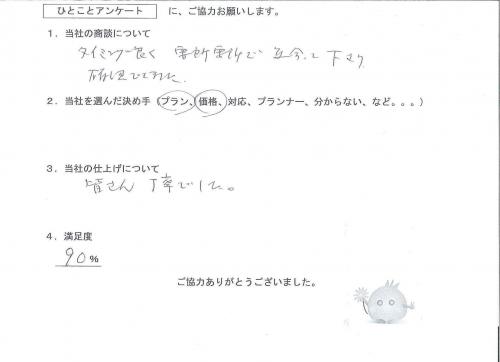 ひとことアンケート に、ご協力お願いします。
1．当社の商談について
タイミング良く 要所要所で 立会って下さり
確認できました。
2．当社を選んだ決め手（プラン、価格、対応、プランナー、分からない、など。。。）
3．当社の仕上げについて
皆さん 丁寧でした。
4．満足度
90 %
ご協力ありがとうございました。